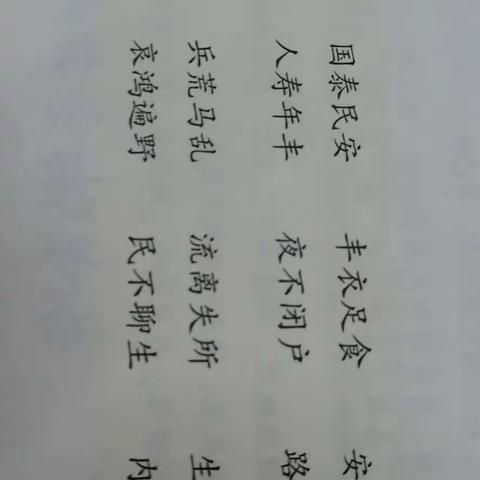 国泰民安 丰衣足食 安
人寿年丰 夜不闭户 路
兵荒马乱 流离失所 生
哀鸿遍野 民不聊生 内